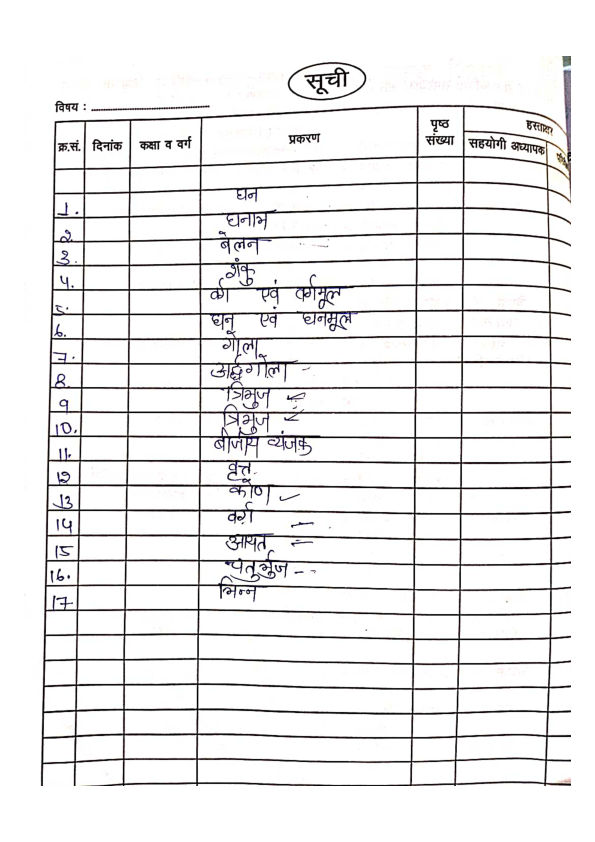 सूची
विषय : ..............................
क्र.सं. दिनांक कक्षा व वर्ग प्रकरण पृष्ठ संख्या हस्ताक्षर
सहयोगी अध्यापक
1. घन
2. घनाभ
3. बेलन
4. शंकु
5. वर्ग एवं वर्गमूल
6. घन एवं घनमूल
7. गोला
8. अर्द्धगोला -
9 त्रिभुज
10. त्रिभुज
11. बीजीय व्यंजक
12 वृत्त
13 कोण ✓
14 वर्ग
15 आयत
16. चतुर्भुज - -
17 भिन्न